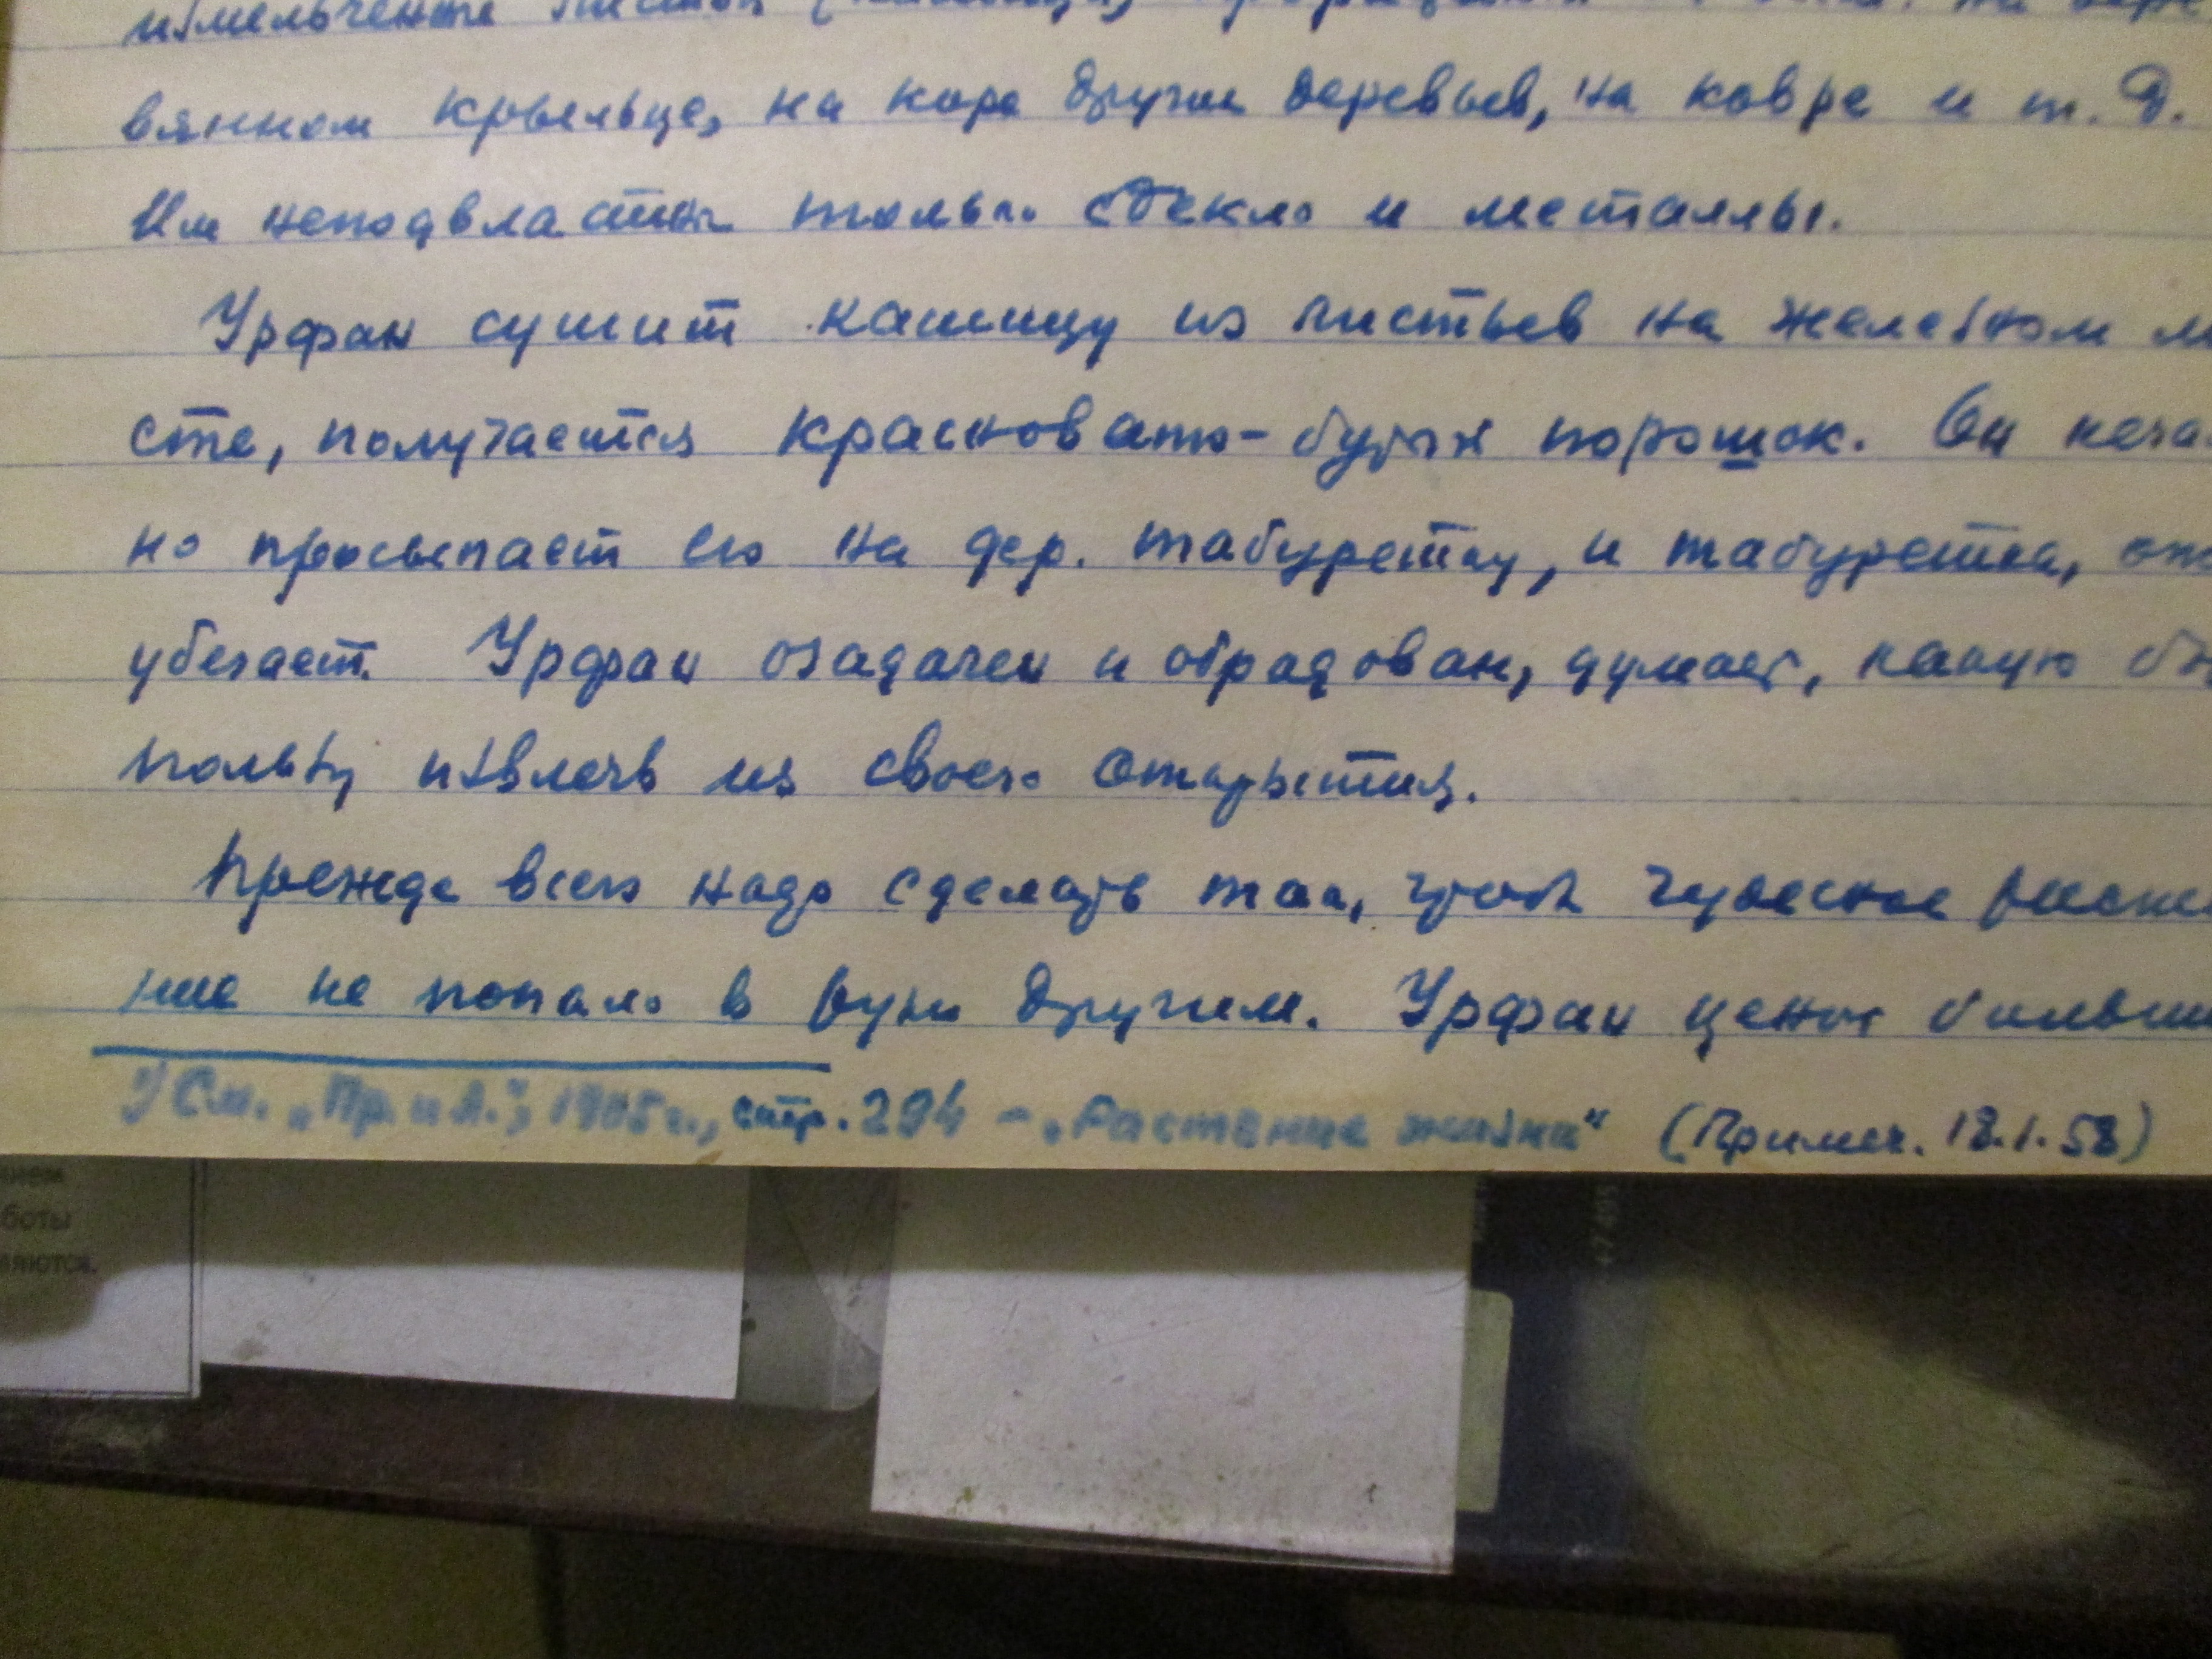 измельченные листья
вянном крыльце, на коре других деревьев, на ковре и т. д.
Им неподвластны только стекло и металлы.
Урфан сушит кашицу из листьев на железном
сте, получается красновато-бурый порошок. Он неча
но просыпает его на дер. табуретку, и табуретка,
убегает. Урфан озадачен и обрадован, думает, какую бы
пользу извлечь из своего открытия.
Прежде всего надо сделать так, чтоб чудесное расте
ние не попало в руки другим. Урфан ценой
См. „Пр. и Л.", 1905 г., стр. 294 – „Растение жизни" (Примеч. 18.1.58)
нием
боты
ляются.